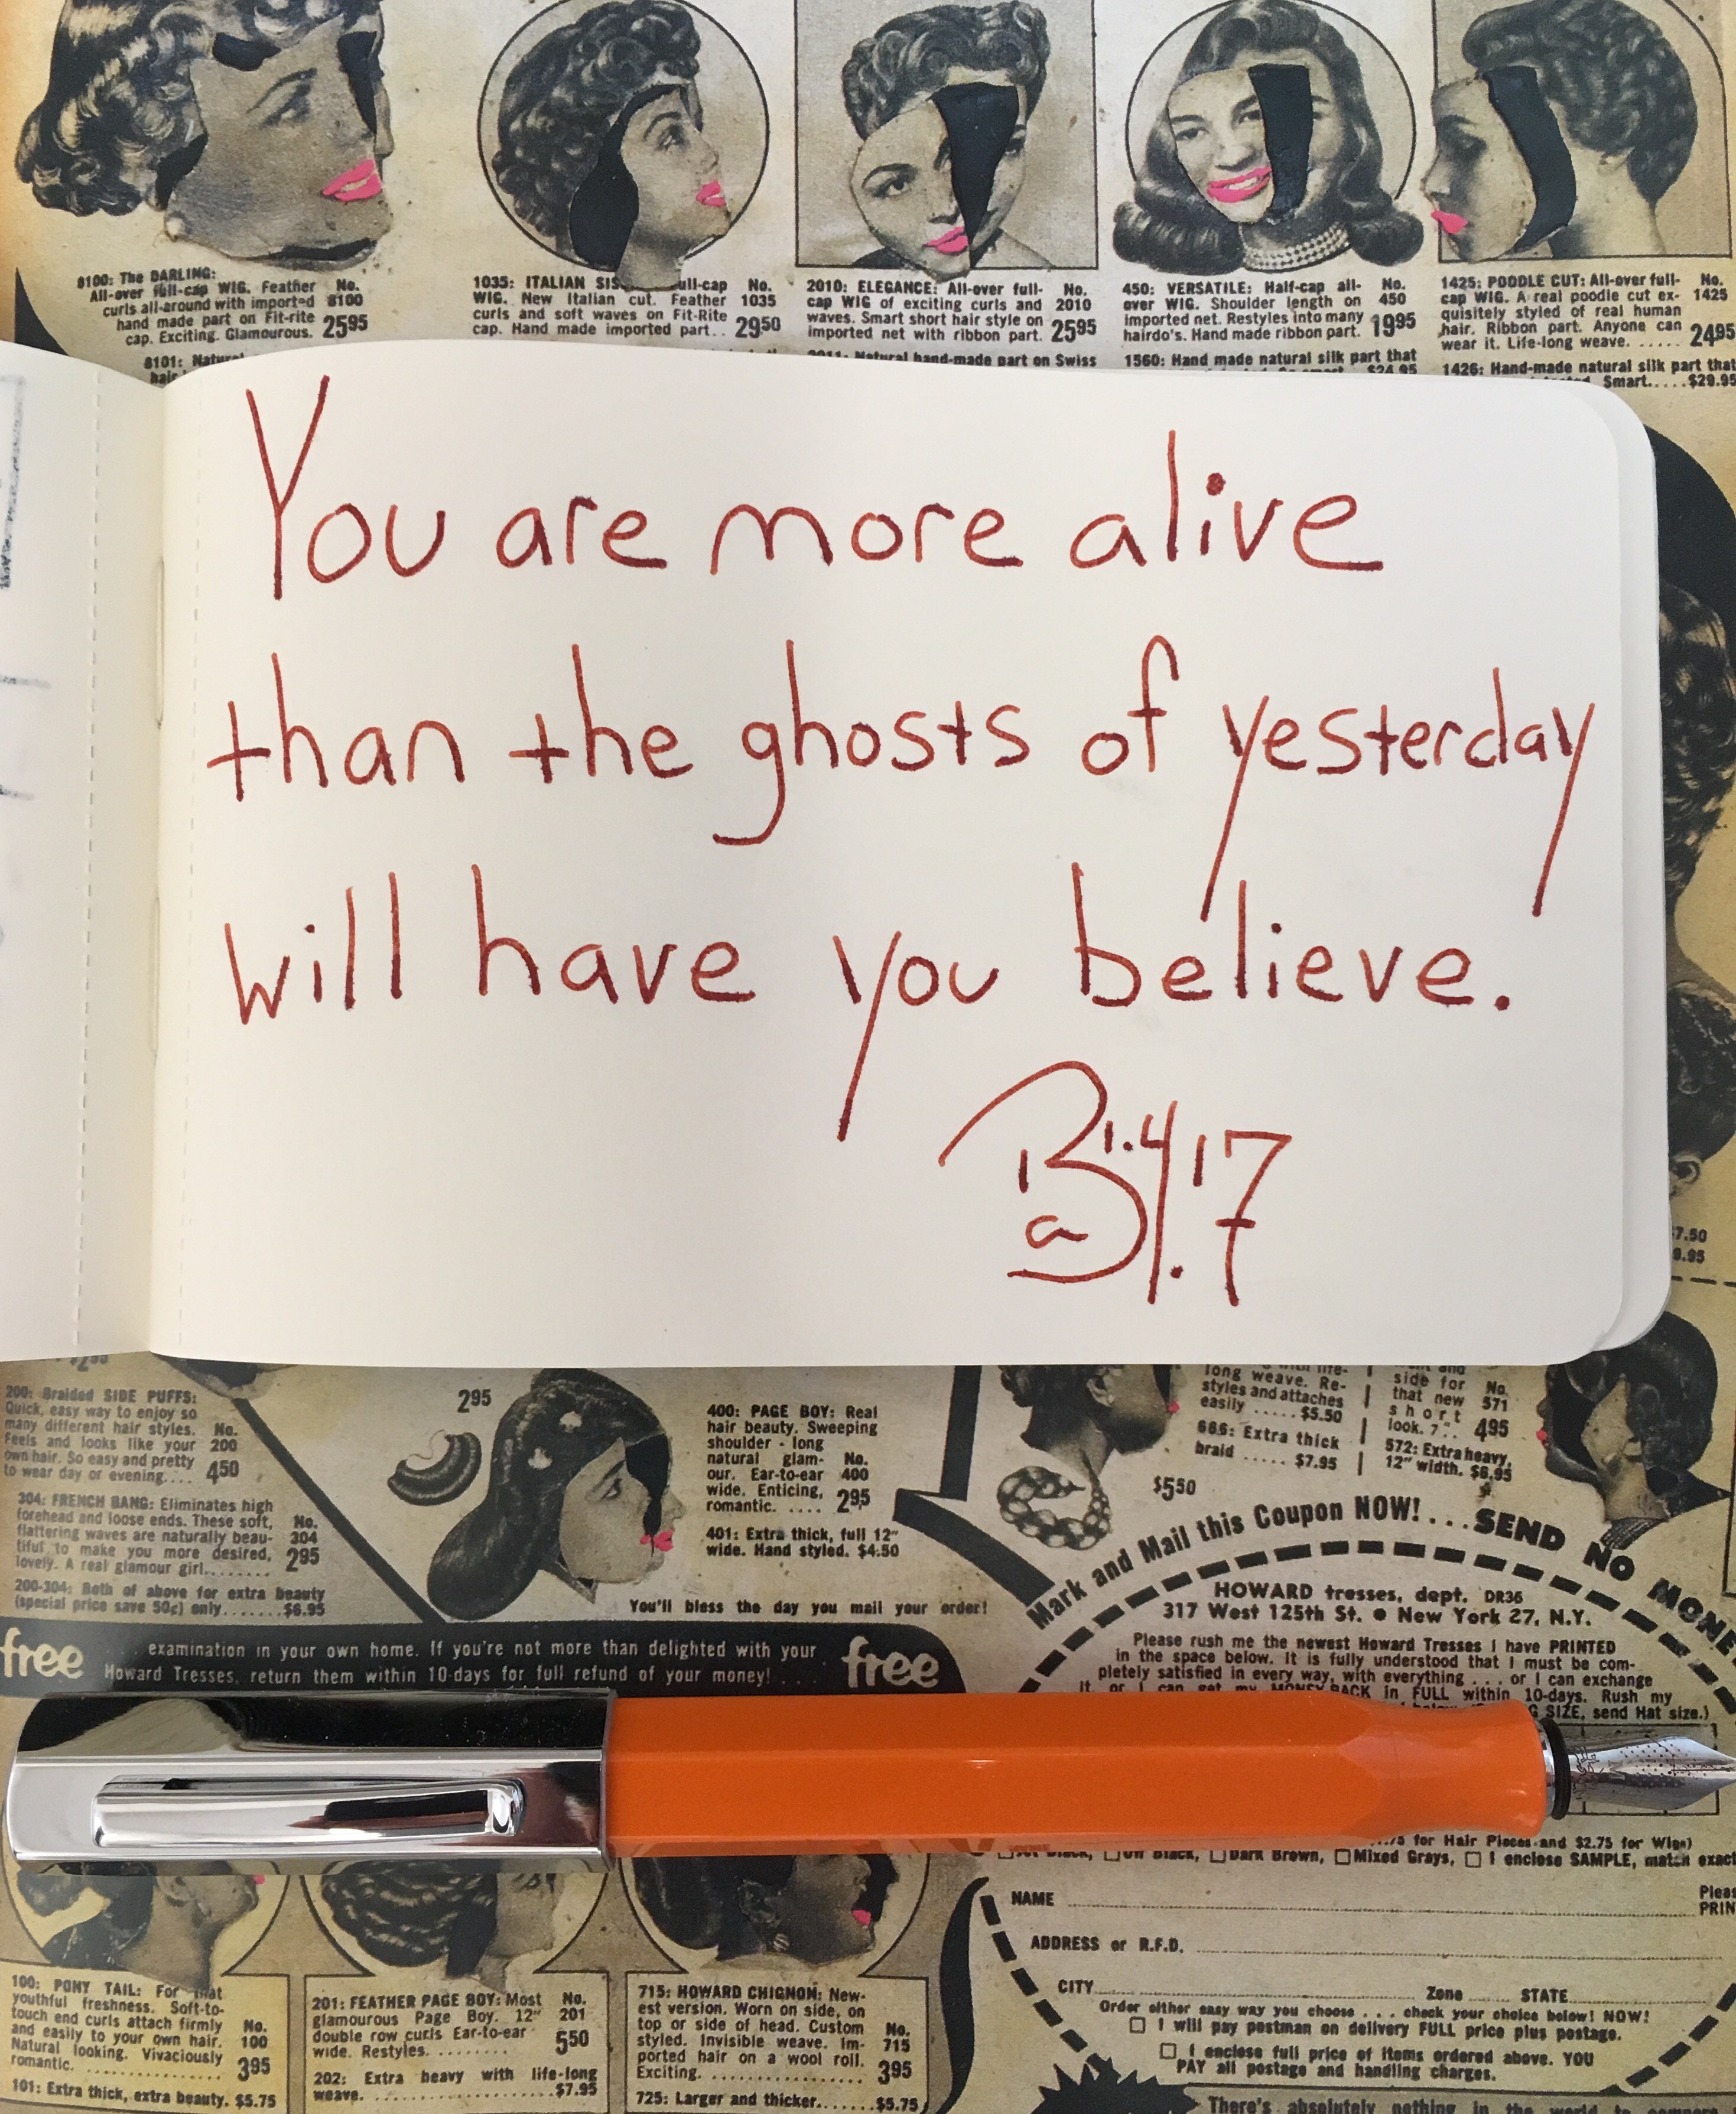 8100: The DARLING:
All-over full-cap WIG. Feather
curls all-around with imported
hand made part on Fit-rite
cap. Exciting. Glamourous.
No.
8100
25 95
8101: Natural
1035: ITALIAN
WIG. New Italian cut. Feather
curls and soft waves on Fit-Rite
cap. Hand made imported part..
No.
1035
29 50
2010: ELEGANCE: All-over full-
cap WIG of exciting curls and
waves. Smart short hair style on
imported net with ribbon part.
No.
2010
25 95
2011: Natural hand-made part on Swiss
450: VERSATILE: Half-cap all-
over WIG. Shoulder length on
imported net. Restyles into many
hairdo's. Hand made ribbon part.
No.
450
19 95
1560: Hand made natural silk part that
$24.95
1425: POODLE CUT: All-over full-
cap WIG. A real poodle cut ex-
quisitely styled of real human
hair. Ribbon part. Anyone can
wear it. Life-long weave. .....
No.
1425
24 95
1426: Hand-made natural silk part that
Smart.....$29.95
You are more alive
than the ghosts of yesterday
will have you believe.
Ba 1.4.17
7.50
9.95
200: Braided SIDE PUFFS:
Quick, easy way to enjoy so
many different hair styles.
Feels and looks like your
own hair. So easy and pretty
to wear day or evening....
No.
200
4 50
304: FRENCH BANG: Eliminates high
forehead and loose ends. These soft,
flattering waves are naturally beau-
tiful to make you more desired,
lovely. A real glamour girl........
No.
304
2 95
200-304: Both of above for extra beauty
(special price save 50¢) only.......$6.95
2 95
400: PAGE BOY: Real
hair beauty. Sweeping
shoulder - long
natural glam-
our. Ear-to-ear
wide. Enticing,
romantic. ....
No.
400
2 95
401: Extra thick, full 12"
wide. Hand styled. $4.50
You'll bless the day you mail your order!
long weave. Re-
styles and attaches
easily .....$5.50
666: Extra thick
braid ..... $7.95
$5 50
side for
that new
short
look. 7"..
No.
571
4 95
572: Extra heavy,
12" width. $6.95
free
... examination in your own home. If you're not more than delighted with your
Howard Tresses, return them within 10-days for full refund of your money! . . .
free
Mark and Mail this Coupon NOW!...SEND NO MONE
HOWARD tresses, dept. DR36
317 West 125th St. ● New York 27, N.Y.
Please rush me the newest Howard Tresses I have PRINTED
in the space below. It is fully understood that I must be com-
pletely satisfied in every way, with everything . . . or I can exchange
it or I can get my MONEY BACK in FULL within 10-days. Rush my
SIZE, send Hat size.)
for Hair Pieces and $2.75 for Wigs)
☐ Jet Black, ☐ Off Black, ☐ Dark Brown, ☐ Mixed Grays, ☐ I enclose SAMPLE, match exact
NAME
Pleas
PRIN
ADDRESS or R.F.D.
CITY Zone STATE
Order either easy way you choose . . . check your choice below! NOW!
☐ I will pay postman on delivery FULL price plus postage.
☐ I enclose full price of items ordered above. YOU
PAY all postage and handling charges.
There's absolutely nothing in the world to compare
100: PONY TAIL: For that
youthful freshness. Soft-to-
touch end curls attach firmly
and easily to your own hair.
Natural looking. Vivaciously
romantic.
No.
100
3 95
101: Extra thick, extra beauty. $5.75
201: FEATHER PAGE BOY: Most
glamourous Page Boy. 12"
double row curls Ear-to-ear
wide. Restyles.
No.
201
5 50
202: Extra heavy with life-long
weave. $7.95
715: HOWARD CHIGNON: New-
est version. Worn on side, on
top or side of head. Custom
styled. Invisible weave. Im-
ported hair on a wool roll.
Exciting.
No.
715
3 95
725: Larger and thicker.......$5.75